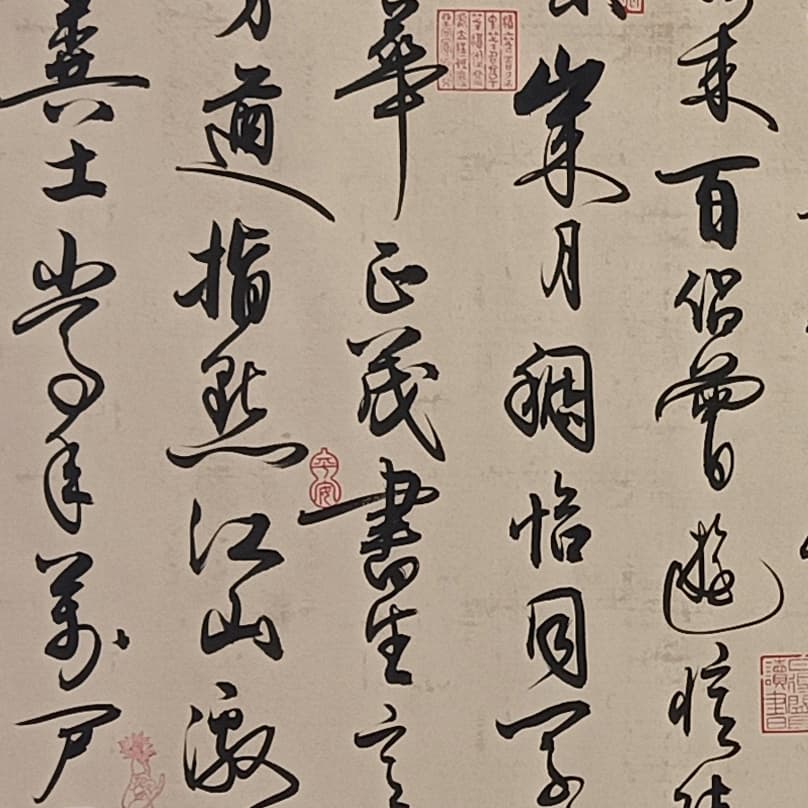 来百侣曾遊憶
歲月稠恰同學
華正茂書生意
方遒指點江山激
糞土當年萬户
平安